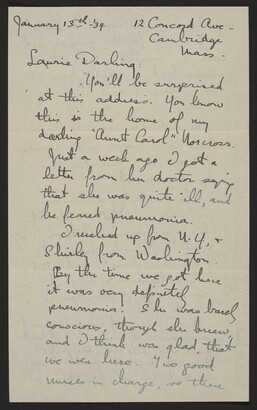 January 13th - '34
12 Concord Ave -
Cambridge
Mass.
Laurie Darling:
You'll be surprised
at this address. You know
this is the home of my
darling "Aunt Carol" Norcross.
Just a week ago I got a
letter from her doctor saying
that she was quite ill, and
he feared pneumonia.
I rushed up from N.Y., &
Shirley from Washington.
By the time we got here
it was very definitely
pneumonia. She was barely
conscious, though she knew
and I think was glad, that
we were here. Two good
nurses in charge, so there